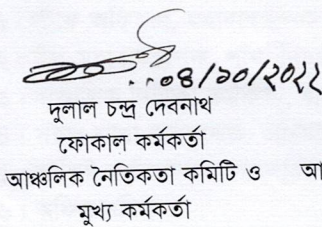 ০৪/১০/২০২২
দুলাল চন্দ্র দেবনাথ
ফোকাল কর্মকর্তা
আঞ্চলিক নৈতিকতা কমিটি ও আ
মুখ্য কর্মকর্তা